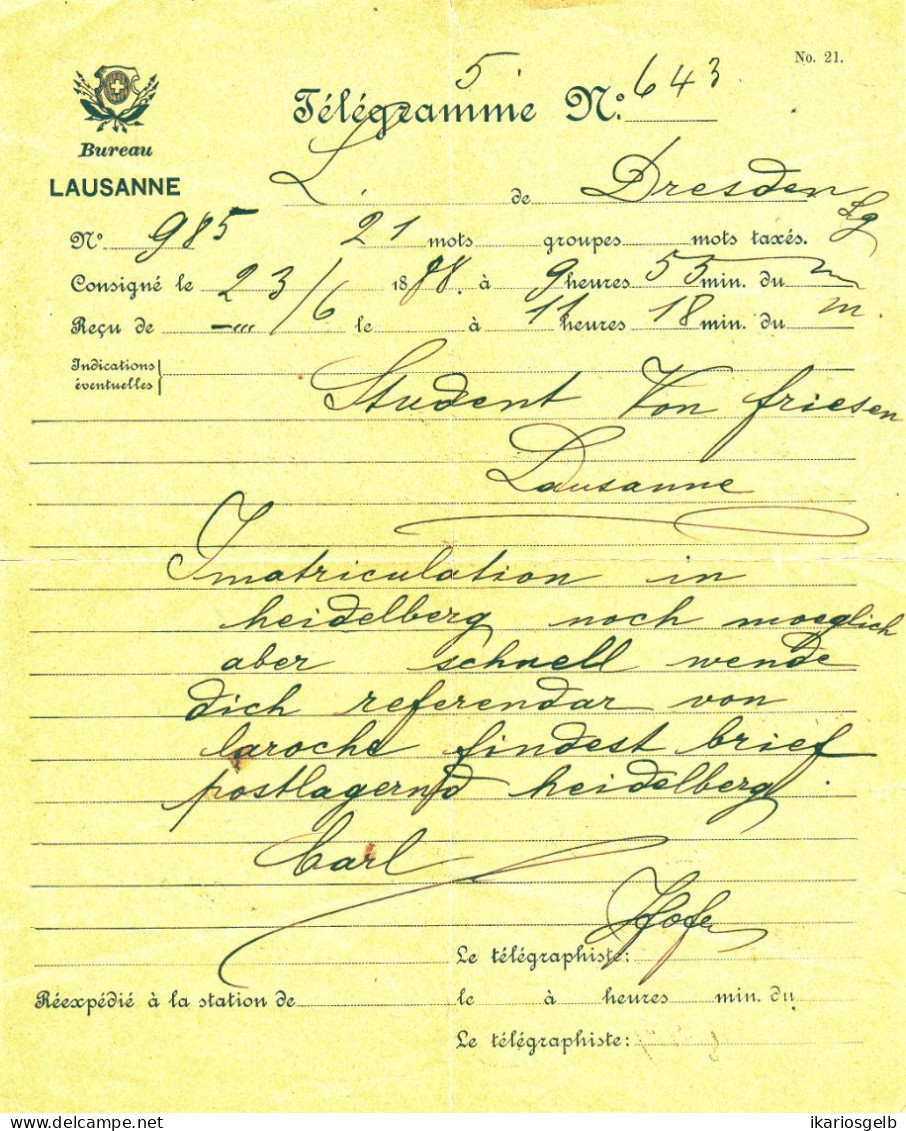 No. 21.
5
Télégramme Nº. 643
Bureau
LAUSANNE
L. de Dresden
Nº 985 21 mots groupes mots taxés.
Consigné le 23/6 1888. à 9 heures 55 min. du m
Reçu de -"" /6 le à 11 heures 18 min. du m.
Indications
éventuelles
Student Von friesen
Lausanne
Imatriculation in
heidelberg noch moeglich
aber schnell wende
dich referendar von
laroche findest brief
postlagernd heidelberg.
Carl
Le télégraphiste: Hofer
Réexpédié à la station de le à heures min. du
Le télégraphiste:
ikariosgelb